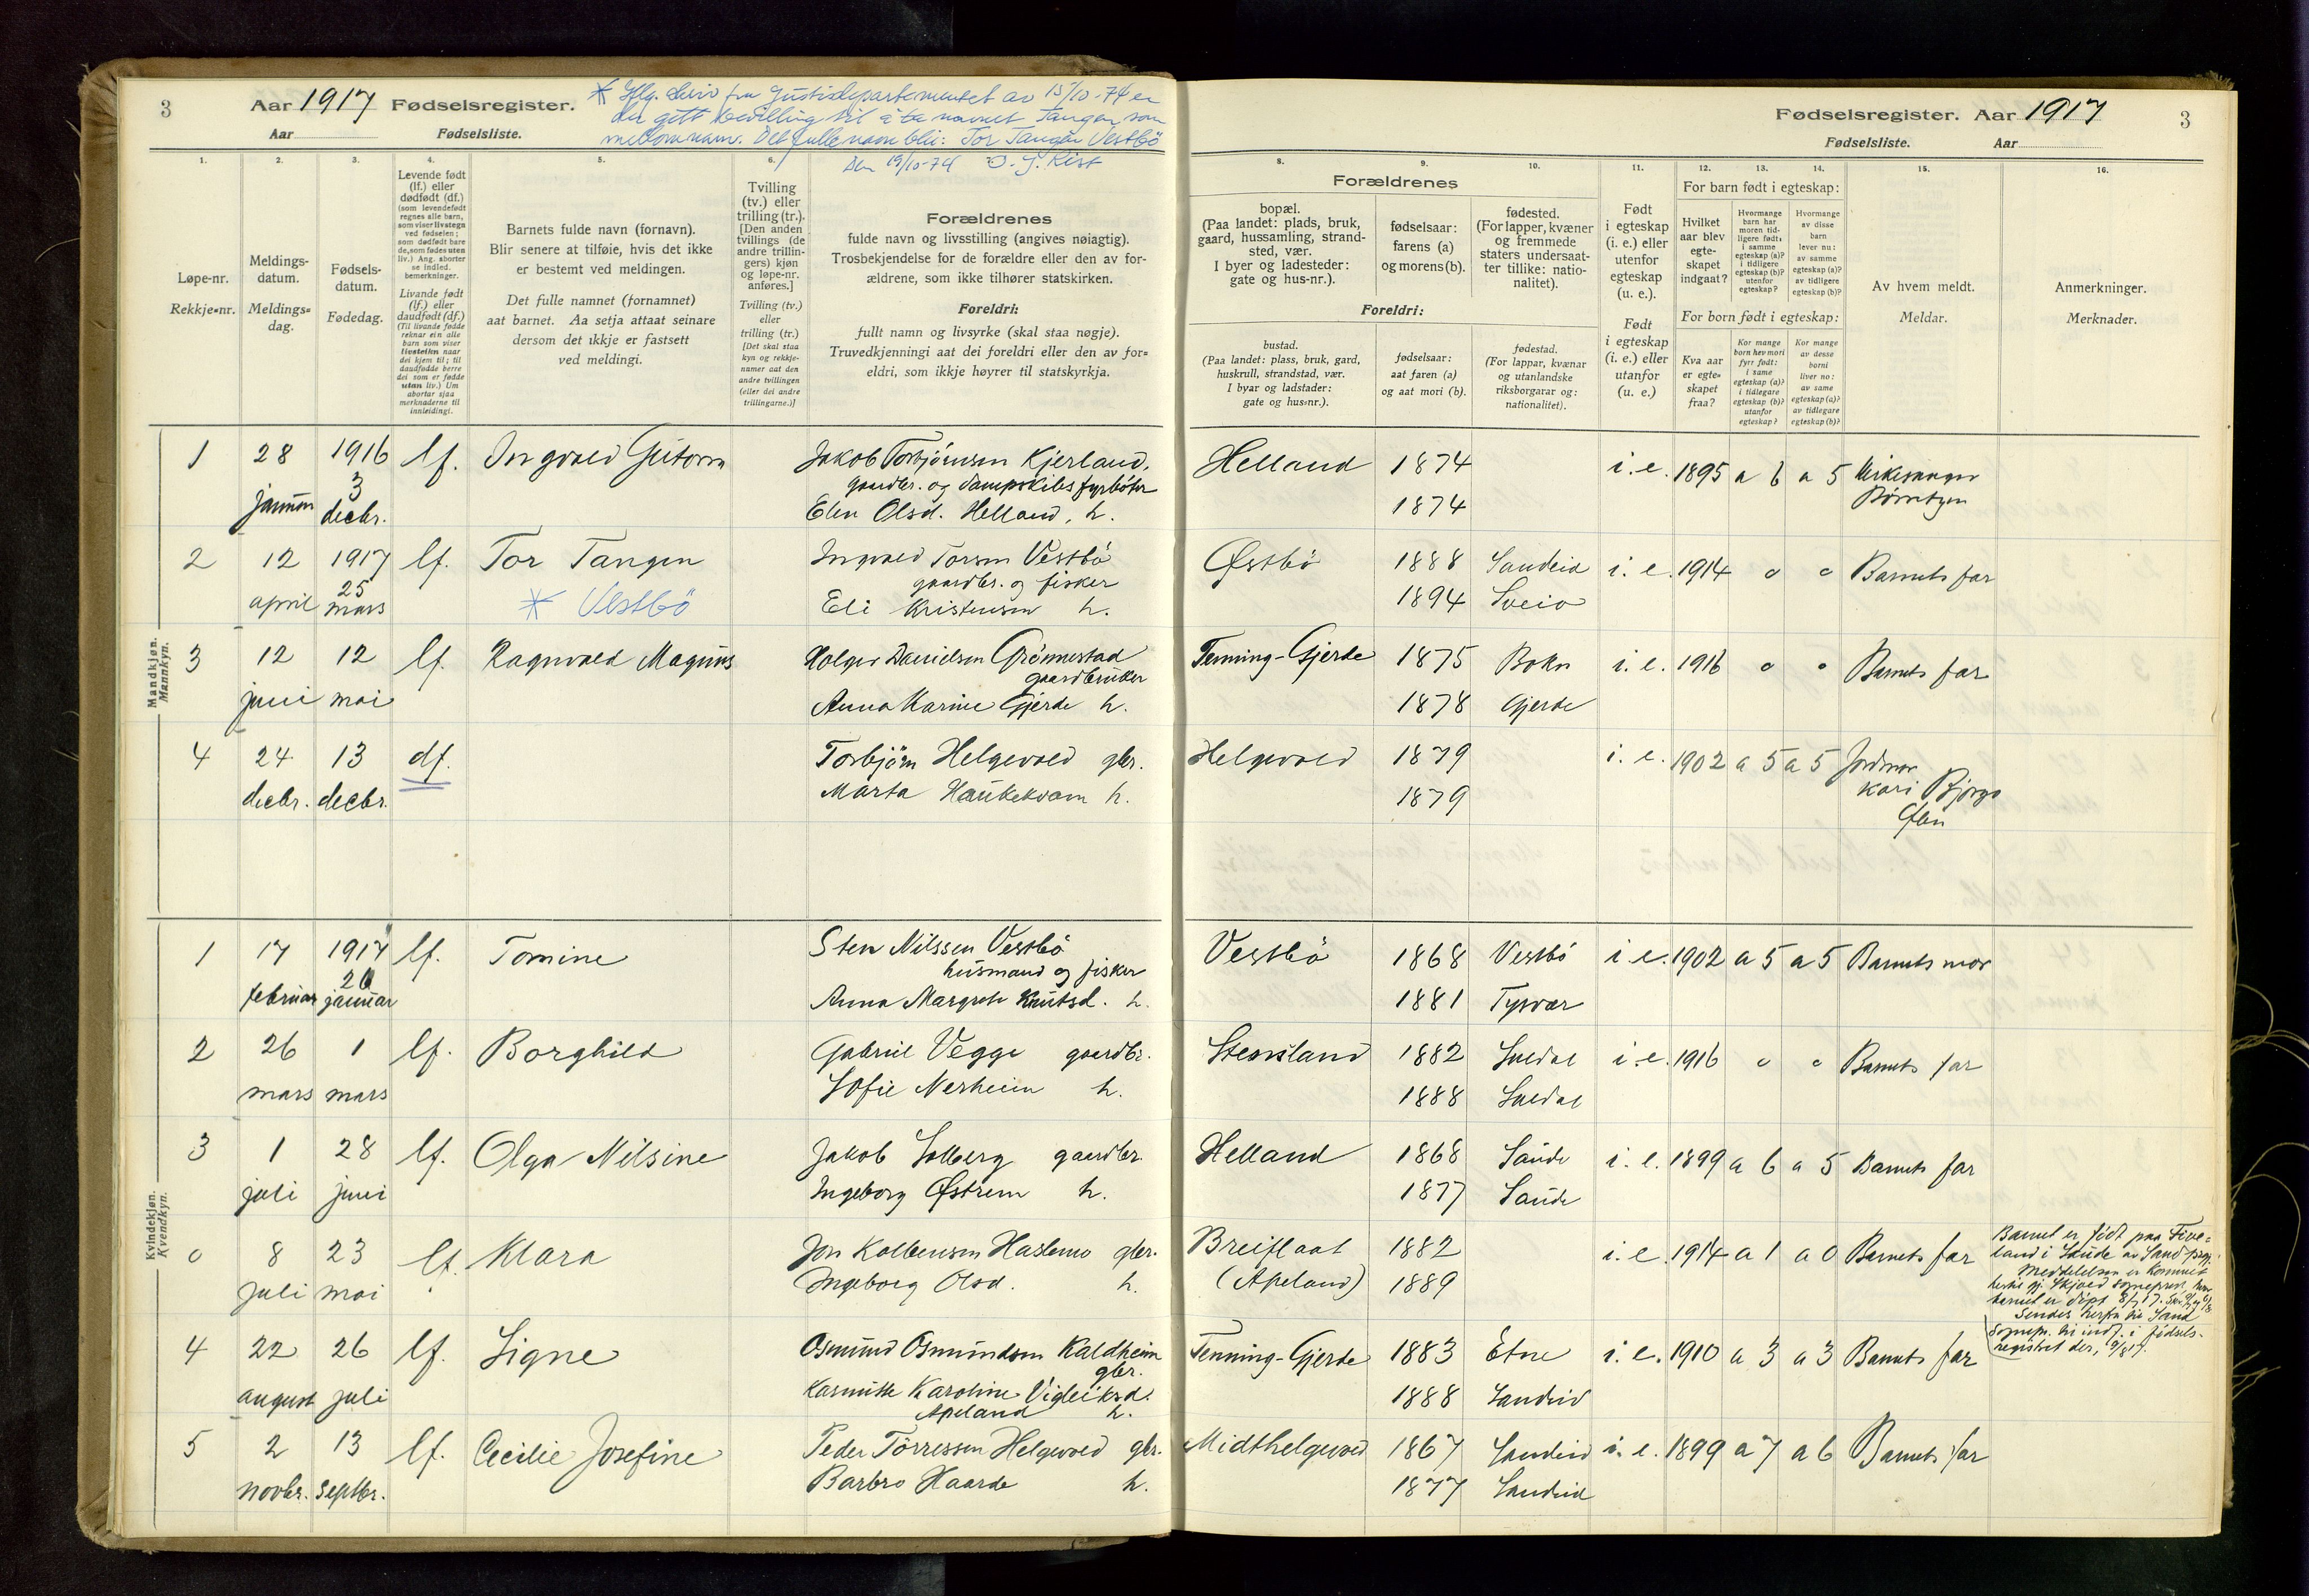 3 Aar 1917 Fødselsregister.
Aar Fødselsliste.
* Iflg. skriv fra Justisdepartementet av 15/10-74 er
det gitt bevilling til å ta navnet Tangen som
mellomnavn. Det fulle navn blir: Tor Tangen Vestbö
Den 19/10-74
1. 2. 3. 4. 5. 6. 7.
Løpe-nr.
Rekkje-nr.
Meldings-
datum.
Meldings-
dag.
Fødsels-
datum.
Fødedag.
Levende født
(lf.) eller
dødfødt (df.)
(som levendefødt
regnes alle barn,
som viser livstegn
ved fødselen;
som dødfødt bare
de, som fødes uten
liv.) Ang. aborter
se indled.
bemerkninger.
Livande født
(lf.) eller
daudfødt (df.)
(Til livande fødde
reknar ein alle
barn som viser
livsteikn naar
dei kjem til; til
daudfødde berre
dei som er fødde
utan liv.) Um
abortar sjaa
merknaderne til
innleidingi.
Barnets fulde navn (fornavn).
Blir senere at tilføie, hvis det ikke
er bestemt ved meldingen.
Det fulle namnet (fornamnet)
aat barnet. Aa setja attaat seinare
dersom det ikkje er fastsett
ved meldingi.
Tvilling
(tv.) eller
trilling (tr.).
[Den anden
tvillings (de
andre trillin-
gers) kjøn
og løpe-nr.
anføres.]
Tvilling (tv.)
eller
trilling (tr.)
[Det skal staa
kyn og rekkje-
numer aat den
andre tvillingen
(eller dei andre
trillingarne.)]
Forældrenes
fulde navn og livsstilling (angives nøiagtig).
Trosbekjendelse for de forældre eller den av for-
ældrene, som ikke tilhører statskirken.
Foreldri:
fullt namn og livsyrke (skal staa nøgje).
Truvedkjenningi aat dei foreldri eller den av for-
eldri, som ikkje høyrer til statskyrkja.
Mandkjøn.
Mannkyn.
1 28 1916 lf. Ingvald Guttorm Jakob Torbjörnsen Kjerland,
3 gaardbr. og dampskibs fyrböter
januar decbr. Elen Olsd. Helland, h.
2 12 1917 lf. Tor Tangen Ingvald Torsen Vestbö
25 gaardbr. og fisker
april mars * Vestbö Eli Kristensen h.
3 12 12 lf. Ragnvald Magnus Holger Danielsen Grönnestad
gaardbruker
juni mai Anna Karine Gjerde h.
4 24 13 df. Torbjörn Helgevold gbr.
decbr. decbr. Marta Haukekvam h.
Kvindekjøn.
Kvendkyn.
1 17 1917 lf. Tomine Sten Nilssen Vestbö
husmand og fisker
februar januar Anna Margrete Knutsd. h.
2 26 1 lf. Borghild Gabriel Vegge gaardbr.
mars mars Sofie Nerheim h.
3 1 28 lf. Olga Nilsine Jakob Solberg gaardbr.
juli juni Ingeborg Østrem h.
0 8 23 lf. Klara Jon Kolbensen Haslemo gbr.
juli mai Ingeborg Olsd. h.
4 22 26 lf. Signe Osmund Osmundsen Kaldheim
gbr.
august juli Karoline Vigleiksd.
Apeland h.
5 2 13 lf. Cecilie Josefine Peder Törressen Helgevold gbr.
novbr. septbr. Barbro Haarde h.
Fødselsregister. Aar 1917 3
Fødselsliste. Aar
8. 9. 10. 11. 12. 13. 14. 15. 16.
Forældrenes
bopæl.
(Paa landet: plads, bruk,
gaard, hussamling, strand-
sted, vær.
I byer og ladesteder:
gate og hus-nr.).
fødselsaar:
farens (a)
og morens (b).
fødested.
(For lapper, kvæner
og fremmede
staters undersaat-
ter tillike: natio-
nalitet).
Foreldri:
bustad.
(Paa landet: plass, bruk, gard,
huskrull, strandstad, vær.
I byar og ladstader:
gate og hus-nr.).
fødselsaar:
aat faren (a)
og aat mori (b).
fødestad.
(For lappar, kvænar
og utanlandske
riksborgarar og:
nationalitet).
Født
i egteskap
(i. e.) eller
utenfor
egteskap
(u. e.).
Født
i egteskap
(i. e.) eller
utanfor
(u. e.)
For barn født i egteskap:
Hvilket
aar blev
egte-
skapet
indgaat?
Hvormange
barn har
moren tid-
ligere født:
i samme
egteskap (a)?
i tidligere
egteskap (b)?
utenfor
egteskap?
Hvormange
av disse
barn
lever nu:
av samme
egteskap (a)?
av tidligere
egteskap (b)?
For born født i egteskap:
Kva aar
er egte-
skapet
fraa?
Kor mange
born hev mori
fyrr født:
i same
egteskap (a)?
i tidlegare
egteskap (b)?
utanfor
egteskap?
Kor mange
av desse
borni
liver no:
av same
egteskap (a)?
av tidlegare
egteskap (b)?
Av hvem meldt.
Meldar.
Anmerkninger.
Merknader.
Helland 1874 i. e. 1895 a 6 a 5 Kirkesanger
1874
Østbö 1888 Sandeid i. e. 1914 0 0 Barnets far
1894 Sveio
Tenning-Gjerde 1875 Bokn i. e. 1916 0 0 Barnets far
1878 Gjerde
Helgevold 1879 i. e. 1902 a 5 a 5 Jordmor
1879 Kari Bjørgo
Ølen
Vestbö 1868 Vestbö i. e. 1902 a 5 a 5 Barnets mor
1881 Tysvær
Stensland 1882 Suldal i. e. 1916 0 0 Barnets far
1888 Suldal
Helland 1868 Saude i. e. 1899 a 6 a 5 Barnets far
1877 Saude
Breiflaat 1882 i. e. 1914 a 1 a 0 Barnets far
(Apeland) 1889
Barnet er födt paa Five-
land i Saude av Sand prgj.
Meddelelsen er kommet
barnet er döpt 8/7 17.
Sendes herfra til Sand
sognepr. til indf. i födsels-
registret der,
Tenning-Gjerde 1883 Etne i. e. 1910 a 3 a 3 Barnets far
1888 Sandeid
Midthelgevold 1867 Sandeid i. e. 1899 a 7 a 6 Barnets far
1877 Sandeid